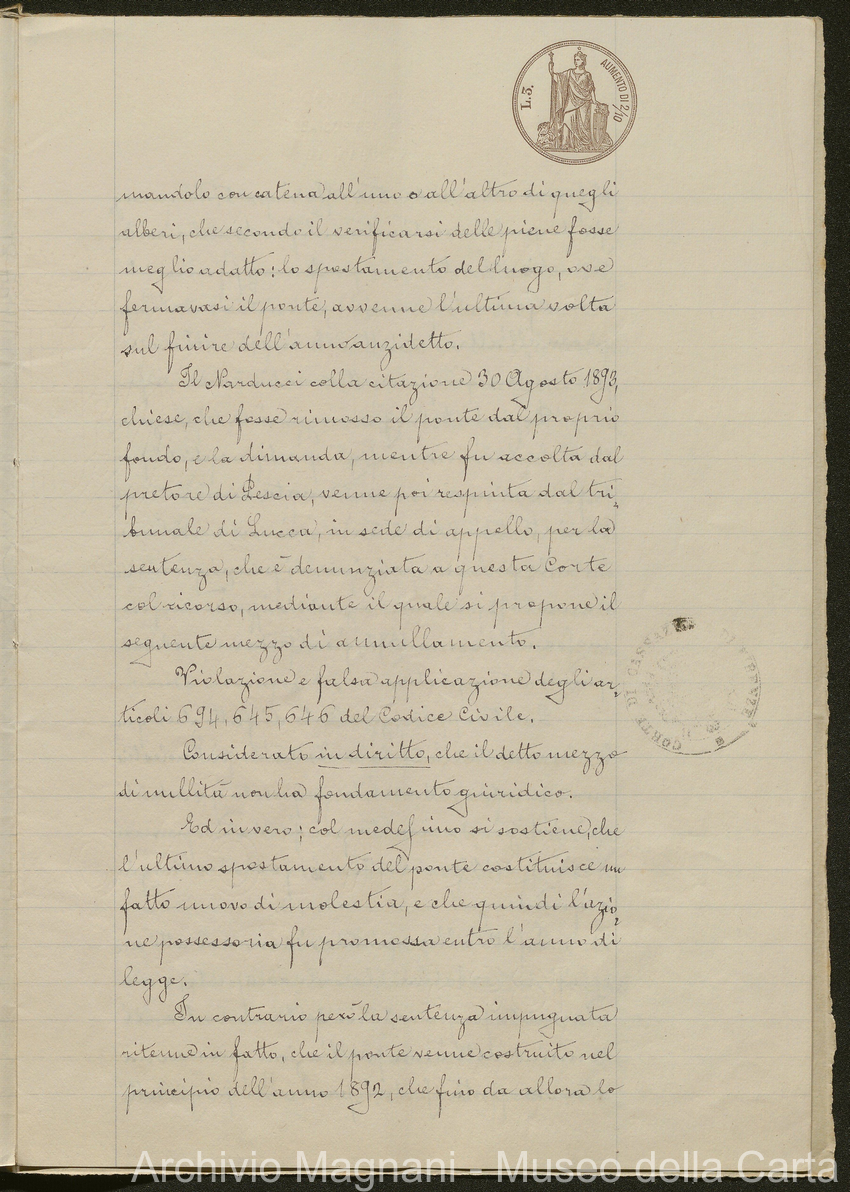 L. 3.
AUMENTO DI 2/10
mandolo con catena all'uno o all'altro di quegli
alberi, che secondo il verificarsi delle piene fosse
meglio adatto: lo spostamento del luogo, ove
fermavasi il ponte, avvenne l'ultima volta
sul finire dell'anno anzidetto.
Il Narducci colla citazione 30 Agosto 1893,
chiese, che fosse rimosso il ponte dal proprio
fondo, e la dimanda, mentre fu accolta dal
pretore di Pescia, venne poi respinta dal tri-
bunale di Lucca, in sede di appello, per la
sentenza, che è denunziata a questa Corte
col ricorso, mediante il quale si propone il
seguente mezzo di annullamento.
Violazione e falsa applicazione degli ar-
ticoli 694, 645, 646 del Codice Civile.
Considerato in diritto, che il detto mezzo
di nullità non ha fondamento giuridico.
Ed invero; col medesimo si sostiene, che
l'ultimo spostamento del ponte costituisce un
fatto nuovo di molestia, e che quindi l'azio-
ne possessoria fu promossa entro l'anno di
legge.
In contrario però la sentenza impugnata
ritenne in fatto, che il ponte venne costruito nel
principio dell'anno 1892, che fino da allora lo
CORTE DI CASSAZ
Archivio Magnani - Museo della Carta